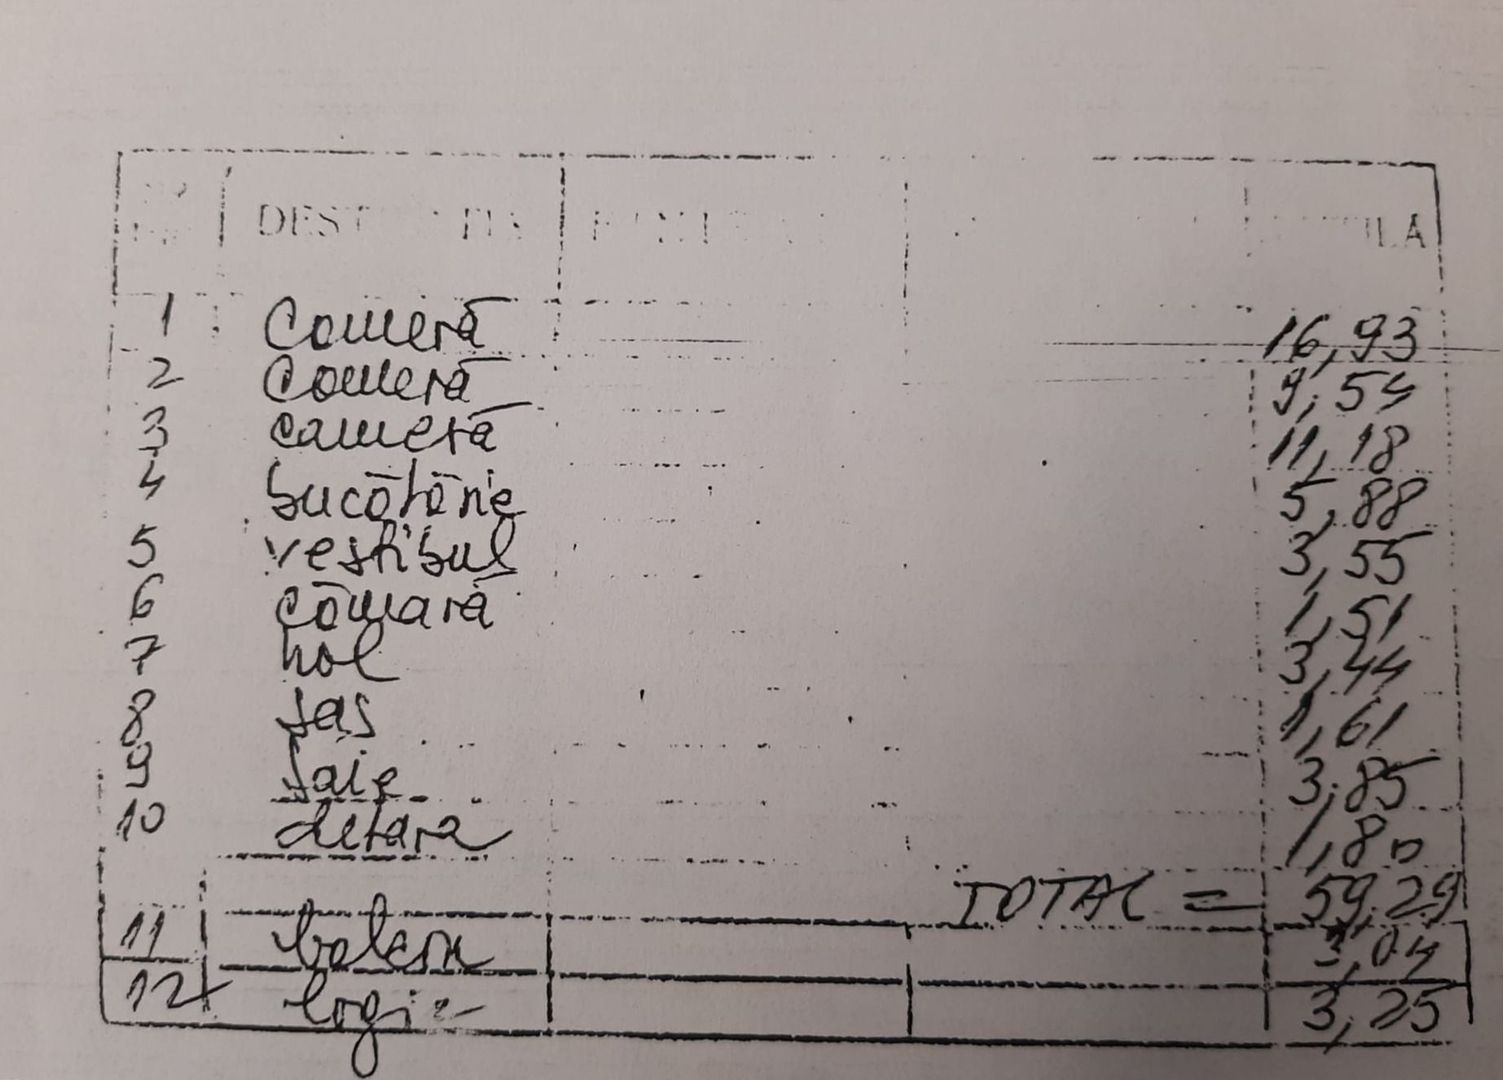 1 Cameră 16,93
2 Cameră 9,54
3 cameră 11,18
4 bucătărie 5,88
5 vestibul 3,55
6 cămară 1,51
7 hol 3,44
8 sas 1,61
9 baie 3,85
10 debara 1,80
TOTAL = 59,29
11 balcon 3,04
12 logie 3,25